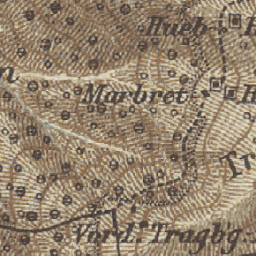 Hueb
Marbret
Tr
Vord. Tragbg